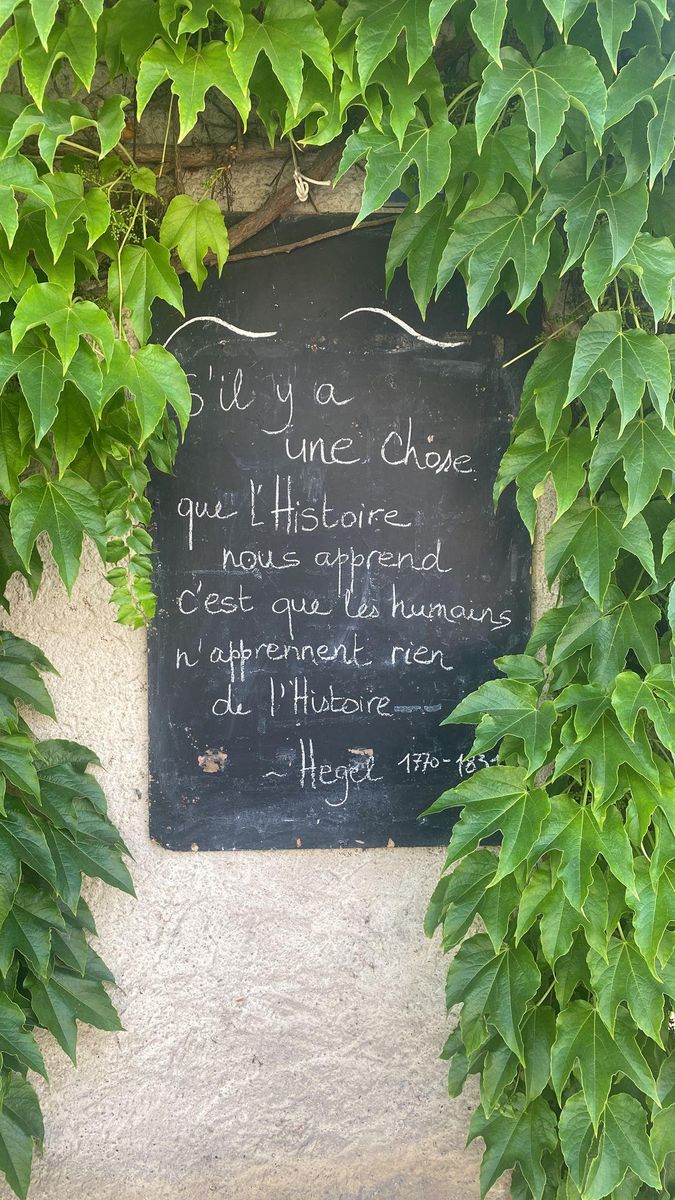 S'il y a
une chose
que l'Histoire
nous apprend
c'est que les humains
n'apprennent rien
de l'Histoire
~ Hegel 1770-183